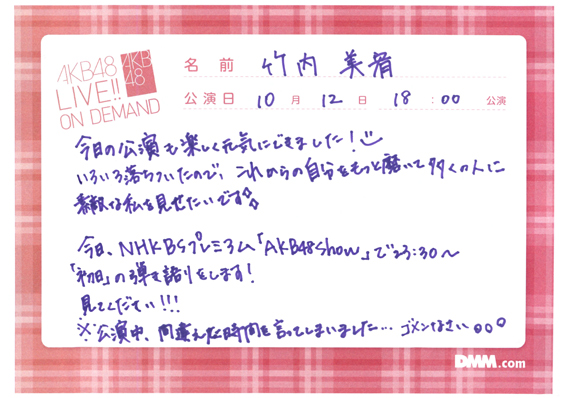 AKB48
LIVE!!
ON DEMAND
AKB
48
名前 竹内 美宥
公演日 10月 12日 18:00 公演
今日の公演も楽しく元気にできました!
いろいろ落ちついたので、これからの自分をもっと磨いて多くの人に
素敵な私を見せたいです
今日、NHKBSプレミアム「AKB48Show」で23:30〜
「初日」の弾き語りをします!
見てください!!!
※公演中、間違えた時間を言ってしまいました… ゴメンなさい。。。
DMM.com